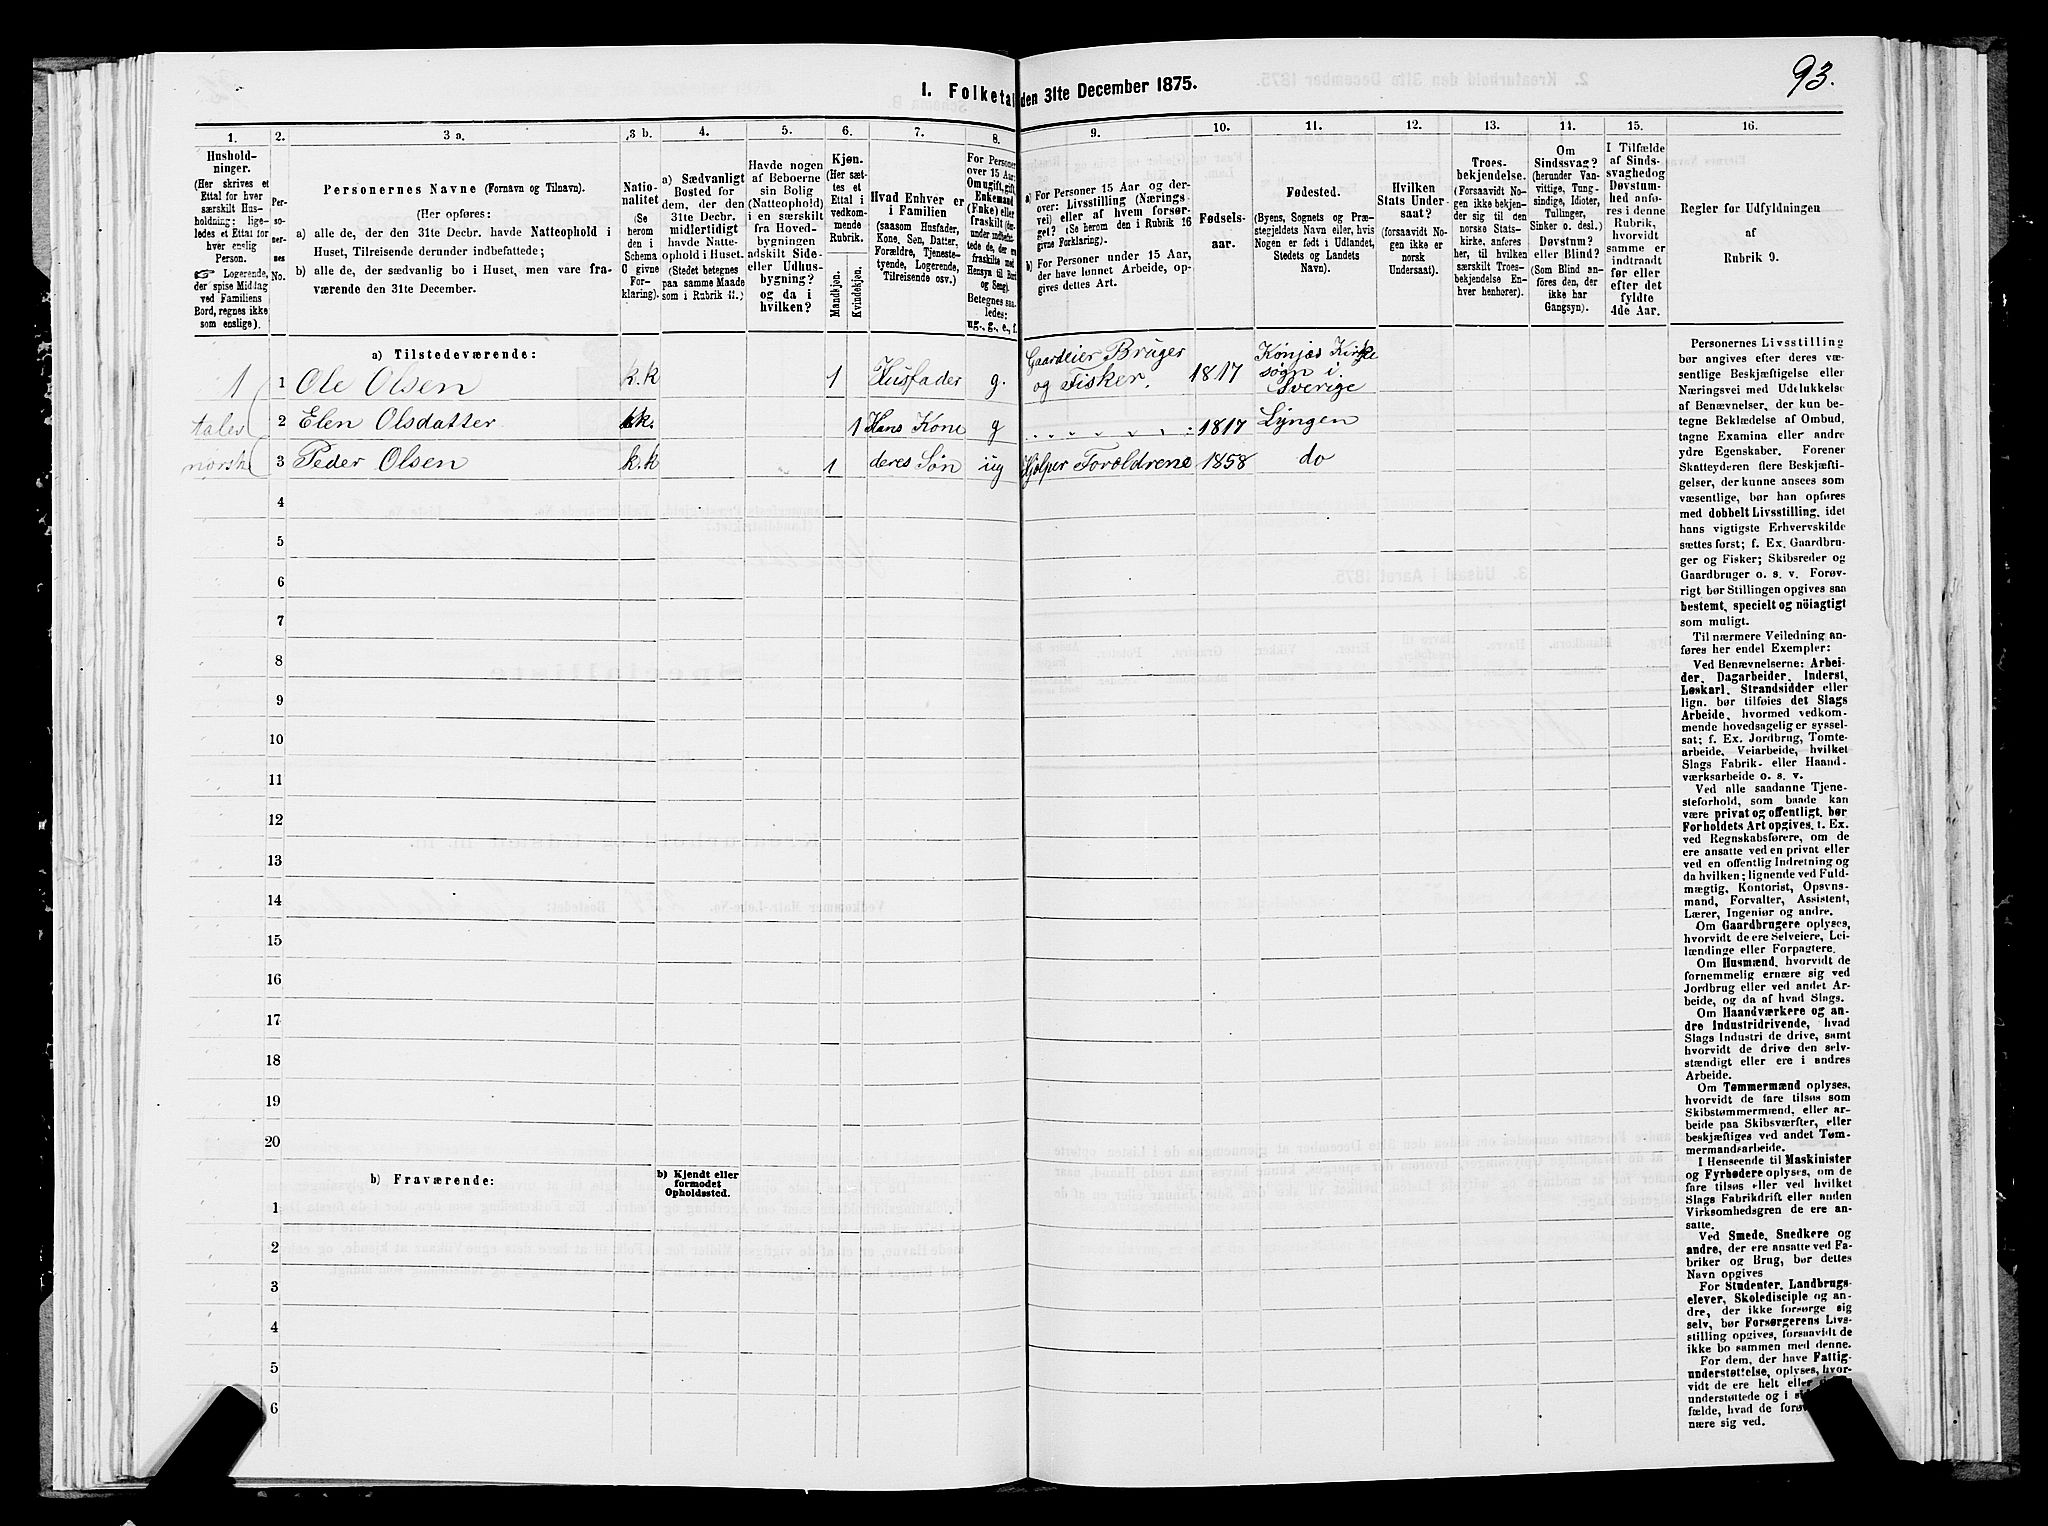 93.
I. Folketal den 31te December 1875.
1. 2. 3 a. 3 b. 4. 5. 6. 7. 8. 9. 10. 11. 12. 13. 14. 15. 16.
Hushold-
ninger.
(Her skrives et
Ettal for hver
særskilt Hus-
holdning; lige-
ledes et Ettal for
hver enslig
Person.
☞ Logerende,
der spise Middag
ved Familiens
Bord, regnes ikke
som enslige).
Per-
so-
ner-
nes
No.
Personernes Navne (Fornavn og Tilnavn).
(Her opføres:
a) alle de, der den 31te Decbr. havde Natteophold i
Huset, Tilreisende derunder indbefattede;
b) alle de, der sædvanlig bo i Huset, men vare fra-
værende den 31te December.
Natio-
nalitet
(Se
herom
den i
Schema
C givne
For-
klaring).
a) Sædvanligt
Bosted for
dem, der den
31te Decbr.
midlertidigt
havde Natte-
ophold i Huset.
(Stedet betegnes
paa samme Maade
som i Rubrik 11.)
Havde nogen
af Beboerne
sin Bolig
(Natteophold)
i en særskilt
fra Hoved-
bygningen
adskilt Side-
eller Udhus-
bygning?
og da i
hvilken?
Kjøn.
(Her sæt-
tes et
Ettal i
vedkom-
mende
Rubrik.
Mandkjøn.
Kvindekjøn.
Hvad Enhver er
i Familien
(saasom Husfader,
Kone, Søn, Datter,
Forældre, Tjeneste-
tyende, Logerende,
Tilreisende osv.)
For Personer
over 15 Aar:
Om ugift, gift,
Enkemand
(Enke) eller
fraskilt (her-
under indbefat-
tede de, der ere
fraskilte med
Hensyn til Bord
og Seng).
Betegnes saa-
ledes:
ug., g., e., f.
a) For Personer 15 Aar og der-
over: Livsstilling (Nærings-
vei) eller af hvem forsør-
get? (Se herom den i Rubrik 16
givne Forklaring).
b) For Personer under 15 Aar,
der have lønnet Arbeide, op-
gives dettes Art.
Fødsels-
aar.
Fødested.
(Byens, Sognets og Præ-
stegjeldets Navn eller, hvis
Nogen er født i Udlandet,
Stedets og Landets
Navn).
Hvilken
Stats Under-
saat?
(forsaavidt No-
gen ikke er
norsk
Undersaat).
Troes-
bekjendelse.
(Forsaavidt No-
gen ikke bekjen-
der sig til den
norske Stats-
kirke, anføres
her, til hvilken
særskilt Troes-
bekjendelse En-
hver henhører).
Om
Sindssvag?
(herunder Van-
vittige, Tung-
sindige, Idioter,
Tullinger,
Sinker o. desl.)
Døvstum?
eller Blind?
(Som Blind an-
føres den, der
ikke har
Gangsyn).
I Tilfælde
af Sinds-
svaghed og
Døvstum-
hed anfø-
res i denne
Rubrik,
hvorvidt
samme er
indtraadt
før eller
efter det
fyldte
4de Aar.
Regler for Udfyldningen
af
Rubrik 9.
a) Tilstedeværende:
1 1 Ole Olsen k.k 1 Husfader g. Gaardeier Bruger og Fisker. 1817 Kirke sogn i Sverige
tales 2 Elen Olsdatter kk. 1 Hans Kone g 1817 Lyngen
norsk 3 Peder Olsen k.k 1 deres Søn ug Hjelper Foreldrene 1858 do
4
5
6
7
8
9
10
11
12
13
14
15
16
17
18
19
20
b) Fraværende:
b) Kjendt eller
formodet
Opholdssted.
1
2
3
4
5
6
Personernes Livsstilling
bør angives efter deres væ-
sentlige Beskjæftigelse eller
Næringsvei med Udelukkelse
af Benævnelser, der kun be-
tegne Beklædelse af Ombud,
tagne Examina eller andre
ydre Egenskaber. Forener
Skatteyderen flere Beskjæfti-
gelser, der kunne ansees som
væsentlige, bør han opføres
med dobbelt Livsstilling, idet
hans vigtigste Erhvervskilde
sættes først; f. Ex. Gaardbru-
ger og Fisker; Skibsreder og
Gaardbruger o. s. v. Forøv-
rigt bør Stillingen opgives saa
bestemt, specielt og nöiagtigt
som muligt.
Til nærmere Veiledning an-
føres her endel Exempler:
Ved Benævnelserne: Arbei-
der, Dagarbeider, Inderst,
Løskarl, Strandsidder eller
lign. bør tilføies det Slags
Arbeide, hvormed vedkom-
mende hovedsagelig er syssel-
sat; f. Ex. Jordbrug, Tomte-
arbeide, Veiarbeide, hvilket
Slags Fabrik- eller Haand-
værksarbeide o. s. v.
Ved alle saadanne Tjene-
steforhold, som baade kan
være privat og offentligt, bør
Forholdets Art opgives, f. Ex.
ved Regnskabsførere, om de
ere ansatte ved en privat eller
ved en offentlig Indretning og
da hvilken; lignende ved Fuld-
mægtig, Kontorist, Opsyns-
mand, Forvalter, Assistent,
Lærer, Ingeniør og andre.
Om Gaardbrugere oplyses,
hvorvidt de ere Selveiere, Lei-
lændinge eller Forpagtere.
Om Husmænd, hvorvidt de
fornemmelig ernære sig ved
Jordbrug eller ved andet Ar-
beide, og da af hvad Slags.
Om Haandværkere og an-
dre Industridrivende, hvad
Slags Industri de drive, samt
hvorvidt de drive den selv-
stændigt eller ere i andres
Arbeide.
Om Tømmermænd oplyses,
hvorvidt de fare tilsøs som
Skibstømmermænd, eller ar-
beide paa Skibsværfter, eller
beskjæftiges ved andet Tøm-
mermandsarbeide.
I Henseende til Maskinister
og Fyrbødere oplyses, om de
fare tilsøs eller ved hvilket
Slags Fabrikdrift eller anden
Virksomhedsgren de ere an-
satte.
Ved Smede, Snedkere og
andre, der ere ansatte ved Fa-
briker og Brug, bør dettes
Navn opgives
For Studenter, Landbrugs-
elever, Skoledisciple og an-
dre, der ikke forsørge sig
selv, bør Forsørgerens Livs-
stilling opgives, forsaavidt de
ikke bo sammen med denne.
For dem, der have Fattig-
understøttelse, oplyses, hvor-
vidt de ere helt eller
understøttede og i
fælde, hvad de
nære sig ved.